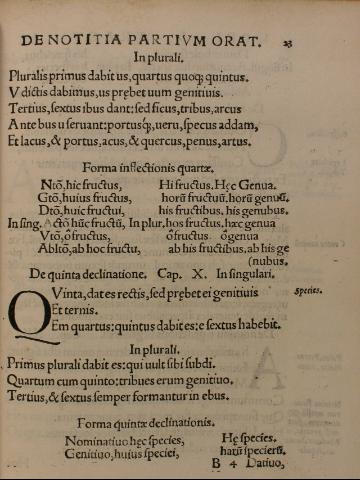 DE NOTITIA PARTIVM ORAT. 23
In plurali.
Pluralis primus dabit us, quartus quoq; quintus.
V dictis dabimus, us prębet uum genitiuis.
Tertius, sextus ibus dant: sed ficus, tribus, arcus
Ante bus u seruant: portusq́;, ueru, specus addam,
Et lacus, & portus, acus, & quercus, penus, artus.
Forma inflectionis quartæ.
Ntō, hic fructus, Hi fructus. Hęc Genua.
Gtō, huius fructus, horū fructuū, horū genuū.
Dtō, huic fructui, his fructibus, his genubus.
In sing. Actō hūc fructū, In plur. hos fructus, hæc genua
Vtō, ô fructus ô fructus ô genua
Abltō, ab hoc fructu, ab his fructibus, ab his ge
(nubus.
De quinta declinatione. Cap. X. In singulari.
QVinta, dat es rectis, sed prębet ei genitiuis species.
Et ternis.
Em quartus: quintus dabit es: e sextus habebit.
In plurali.
Primus plurali dabit es: qui uult sibi subdi.
Quartum cum quinto: tribues erum genitiuo.
Tertius, & sextus semper formantur in ebus.
Forma quintæ declinationis.
Nominatiuo hęc species, Hę species.
Genitiuo, huius speciei, harū specierū.
B 4 Datiuo,